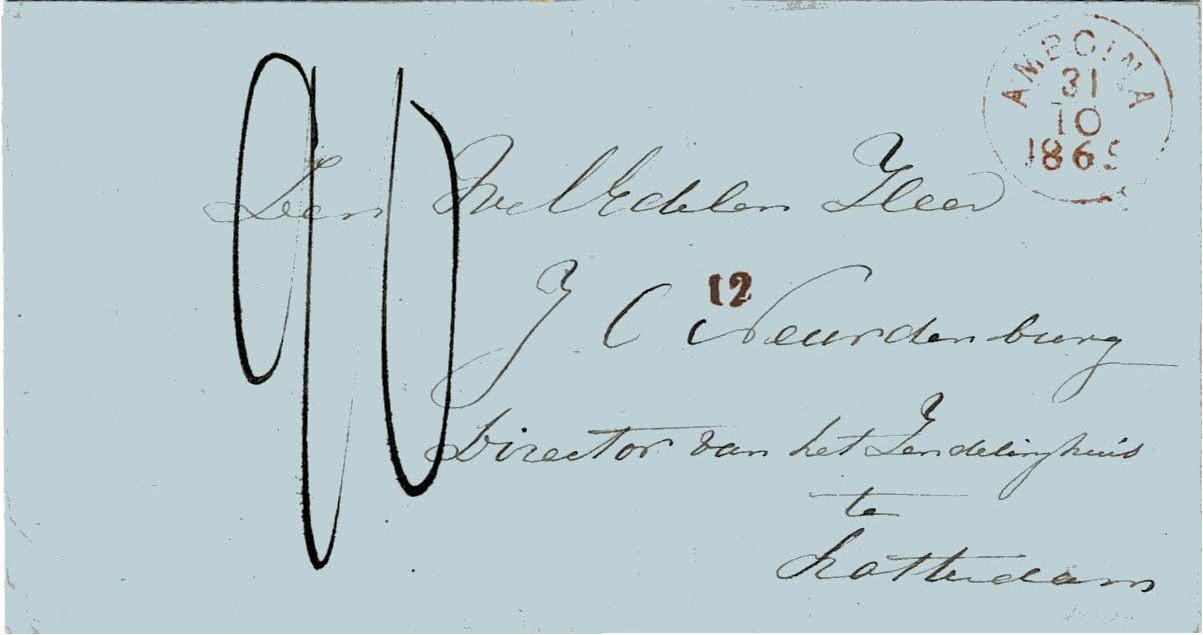 AMBOINA
31
10
1865
90
Den Wel Edelen Heer
12
J C Neurdenburg
Director van het Zendelinghuis
te
Rotterdam